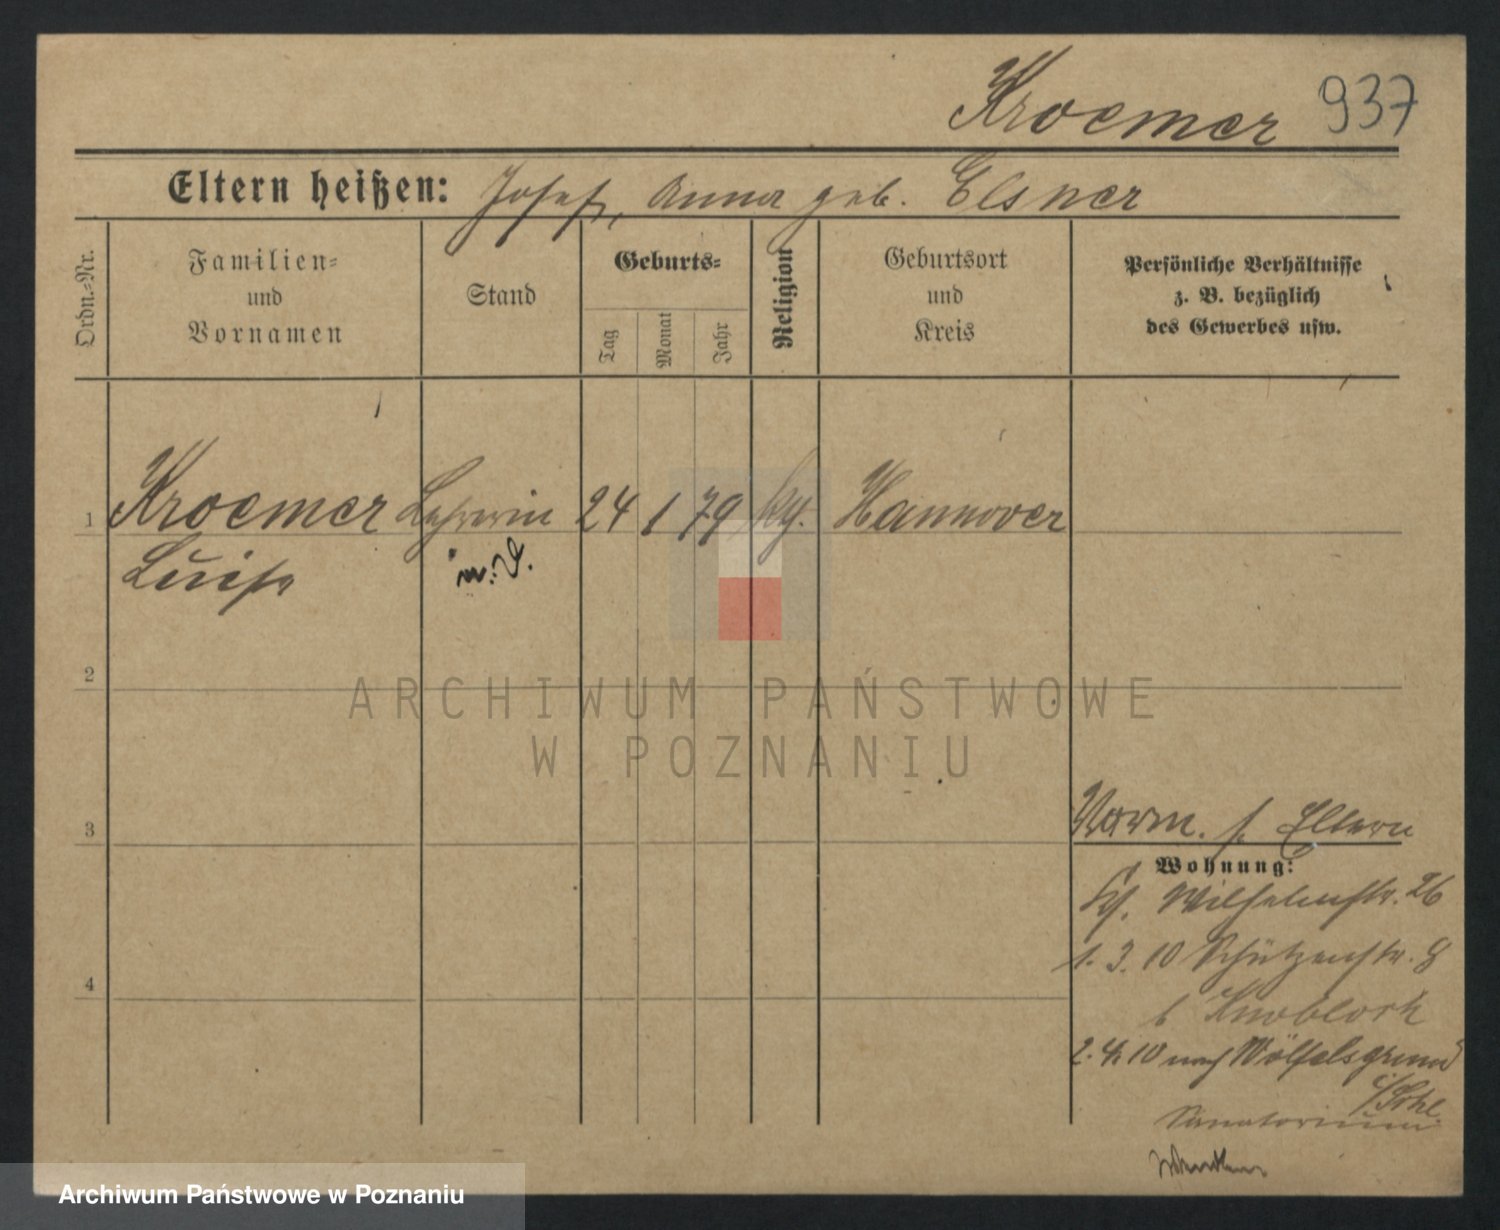 Kroemer 937
Eltern heißen: Josef, Anna geb. Elsner
Ordn.-Nr.
Familien-
und
Vornamen
Stand
Geburts-
Tag
Monat
Jahr
Religion
Geburtsort
und
Kreis
Persönliche Verhältnisse
z. B. bezüglich
des Gewerbes usw.
1 Kroemer Lehrerin 24 1 79 Hannover
Luise
2
3
4
Vorm. s. Eltern
Wohnung:
Wilhelmstr. 26
1. 3. 10 Schützenstr. 8
b Knobloch
2. 4. 10 nach Wölfelsgrund
Sanatorium
ARCHIWUM PAŃSTWOWE
W POZNANIU
Archiwum Państwowe w Poznaniu